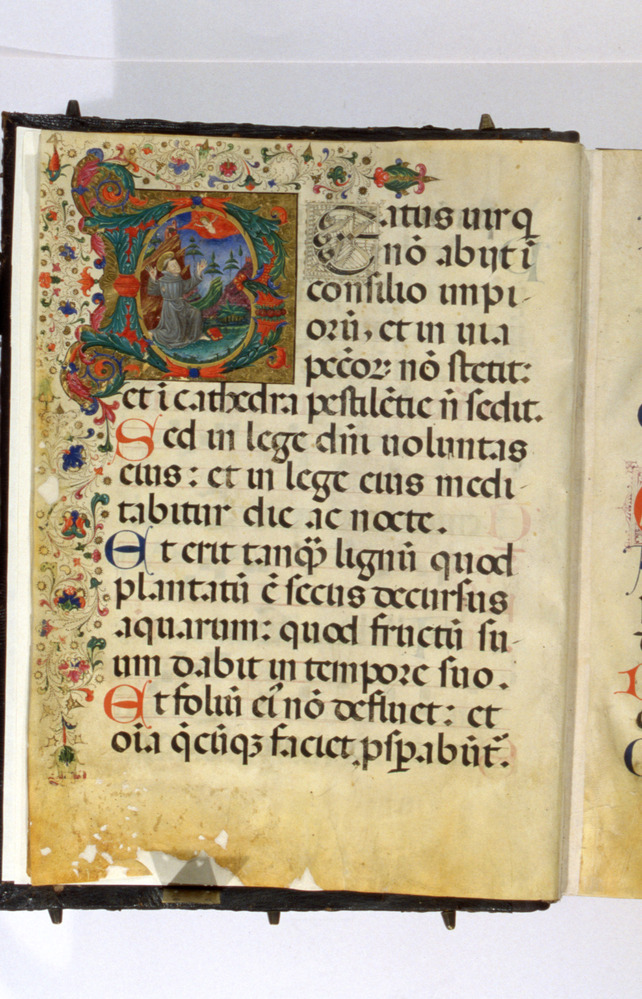 Eatus uir q
nō abijt ī
consilio impi
orū, et in uia
pec̄oꝝ nō stetit:
et ī cathedra pestilētie n̄ sedit.
Sed in lege dn̄i uoluntas
eius: et in lege eius medi
tabitur die ac nocte.
Et erit tanqꝫ lignū quod
plantatū ē secus decursus
aquarum: quod fructū su
um dabit in tempore suo.
Et foliū eiꝰ nō defluet: et
oīa q̄cūqꝫ faciet, ꝓsꝑabūt᷑.